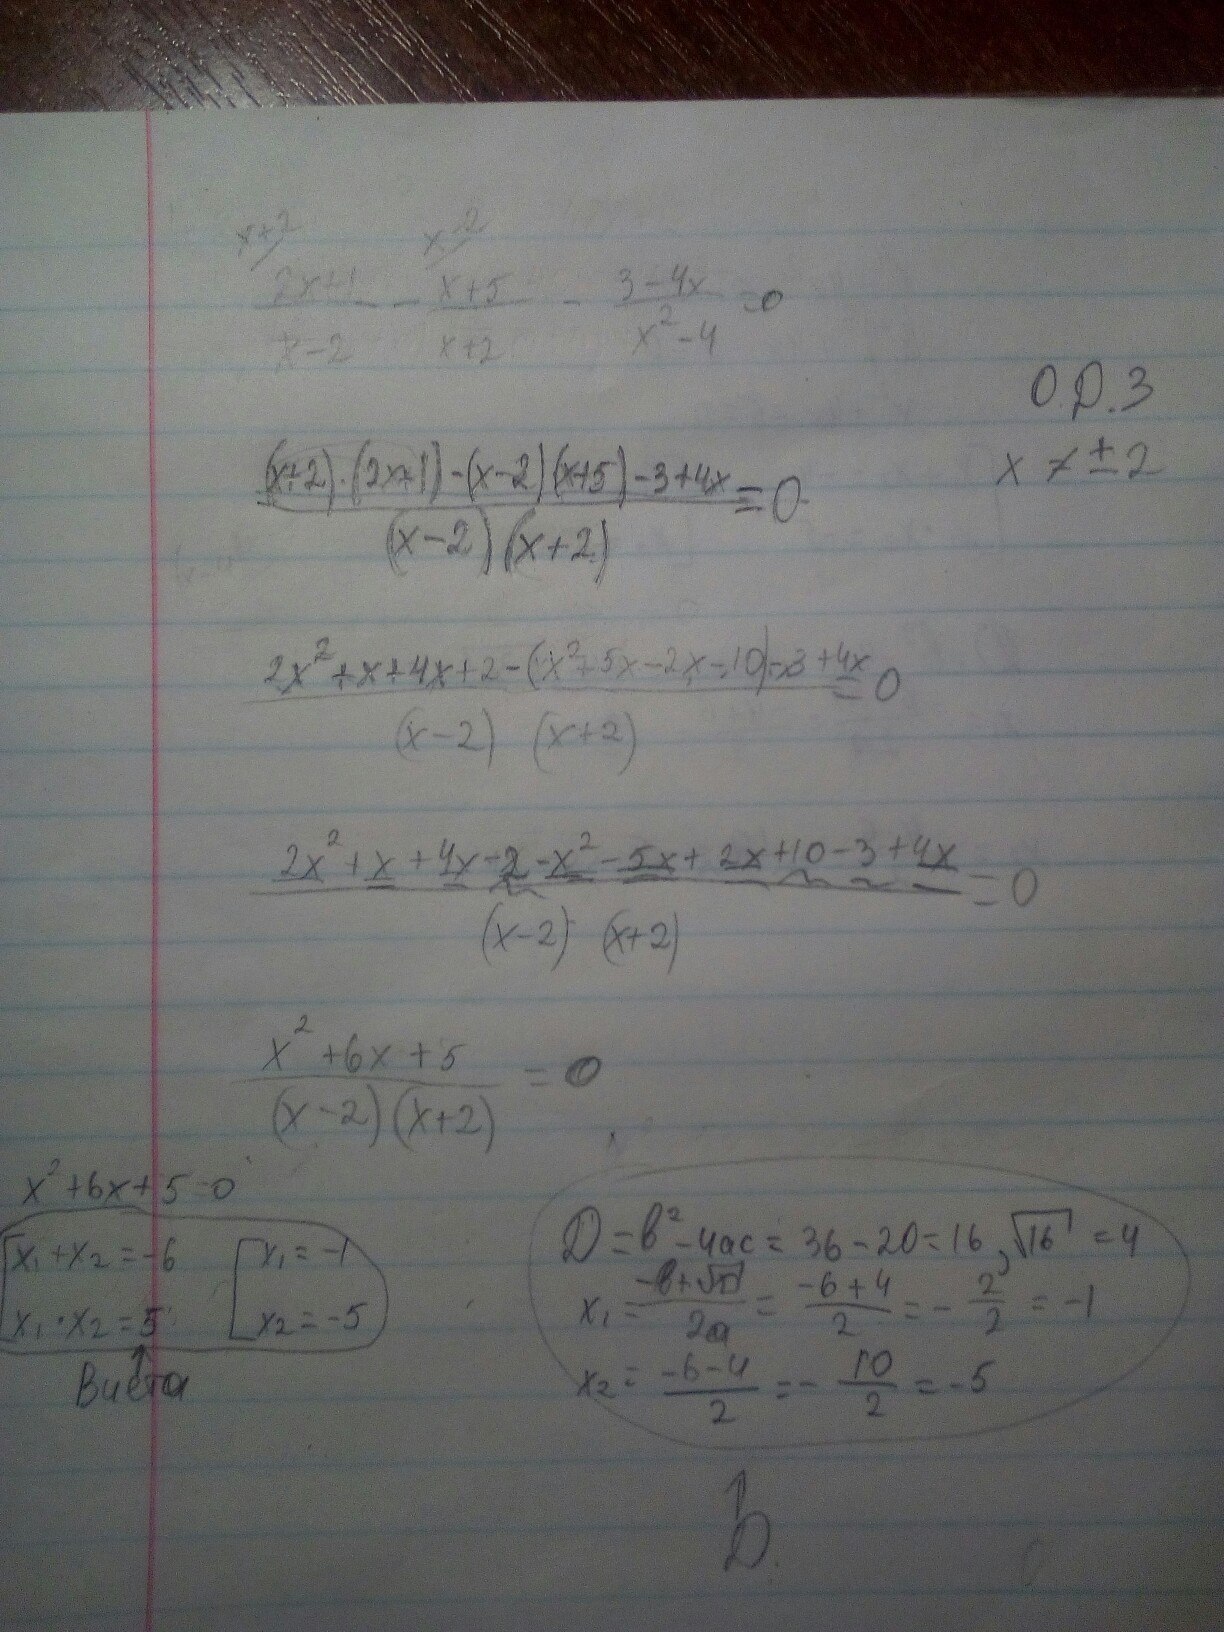 x+2 x-2
(2x+1)/(x-2) - (x+5)/(x+2) - (3-4x)/(x²-4) = 0
О.Д.З
x ≠ ±2
((x+2)·(2x+1)-(x-2)(x+5)-3+4x)/((x-2)(x+2)) = 0
(2x²+x+4x+2-(x²+5x-2x-10)-3+4x)/((x-2)(x+2)) = 0
(2x²+x+4x-2-x²-5x+2x+10-3+4x)/((x-2)(x+2)) = 0
(x²+6x+5)/((x-2)(x+2)) = 0
x²+6x+5=0
[x₁+x₂=-6 [x₁=-1
x₁·x₂=5 x₂=-5
↑
Виета
D=b²-4ac=36-20=16, √16=4
x₁=(-b+√D)/(2a)=(-6+4)/2=-2/2=-1
x₂=(-6-4)/2=-10/2=-5